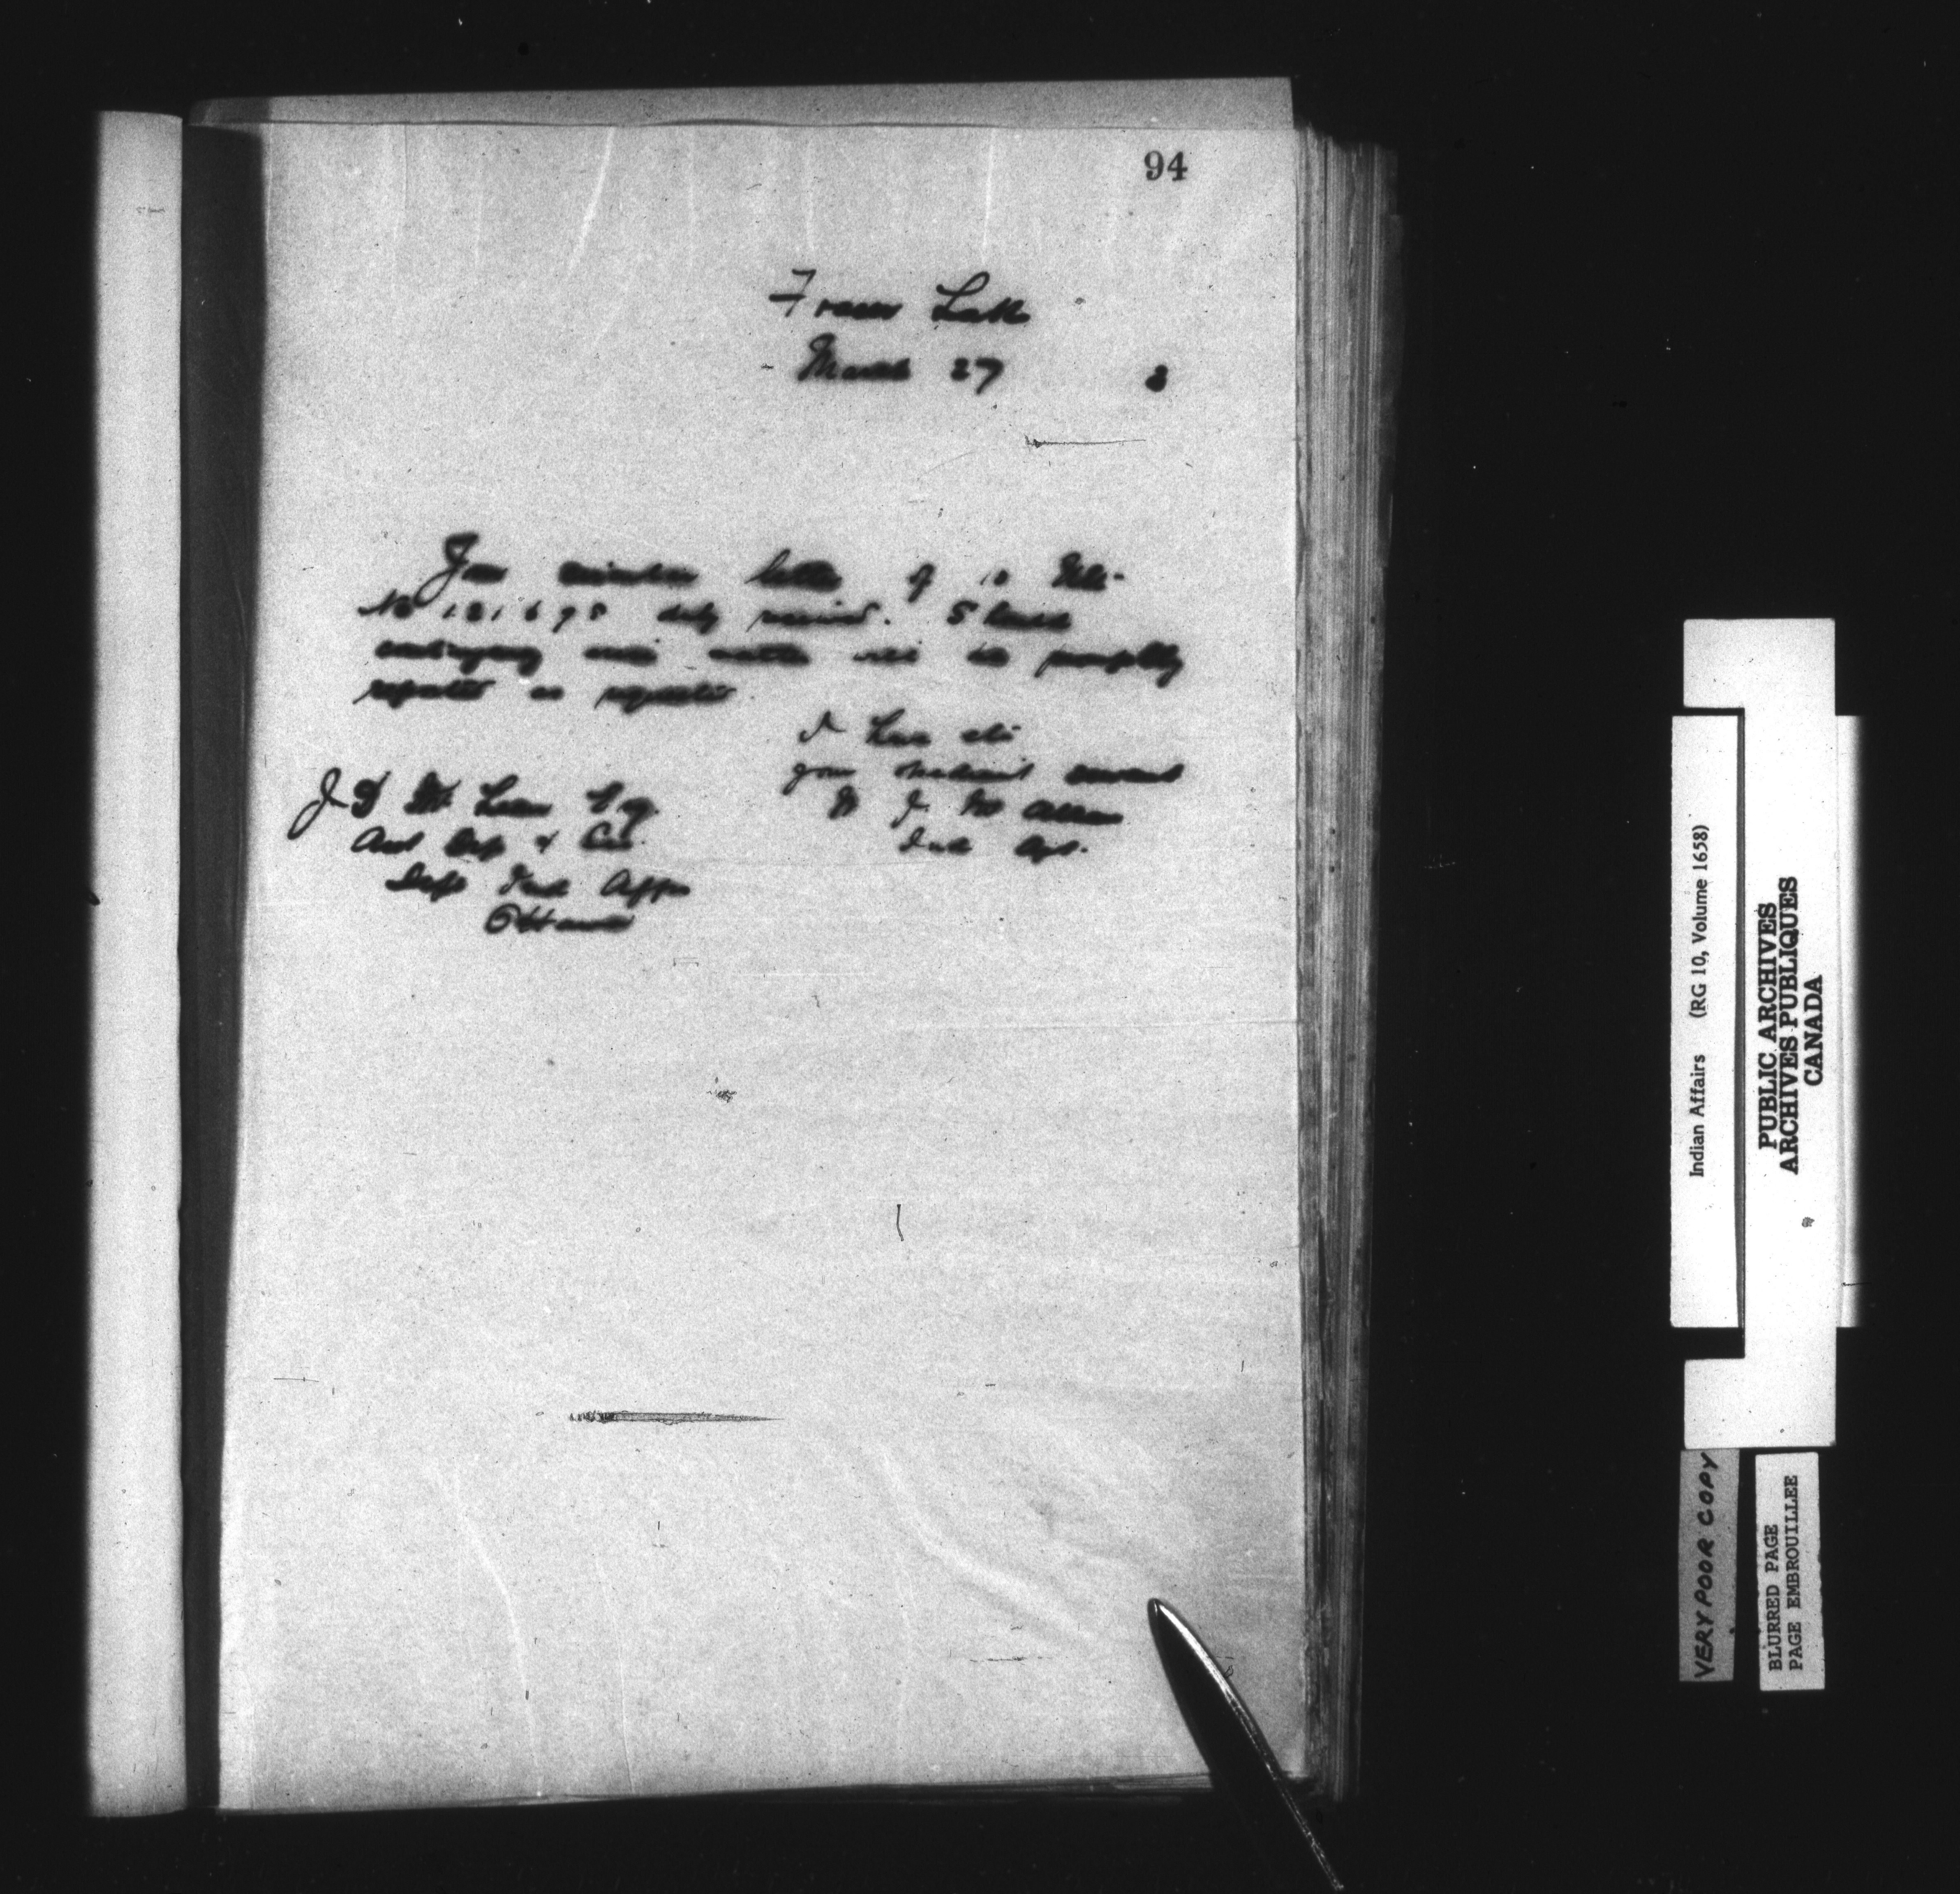 94
Fraser Lake
March 27 3
Your circular letter of 10 Feb.
No 121698 duly received. Should
contingency arise matter will be promptly
reported as requested
I have etc
your obedient servant
W J McAllan
Ind Agt.
J D McLean Esq
Asst Dep & Sec.
Dept Ind Affrs
Ottawa
Indian Affairs (RG 10, Volume 1658)
PUBLIC ARCHIVES
ARCHIVES PUBLIQUES
CANADA
VERY POOR COPY
BLURRED PAGE
PAGE EMBROUILLEE